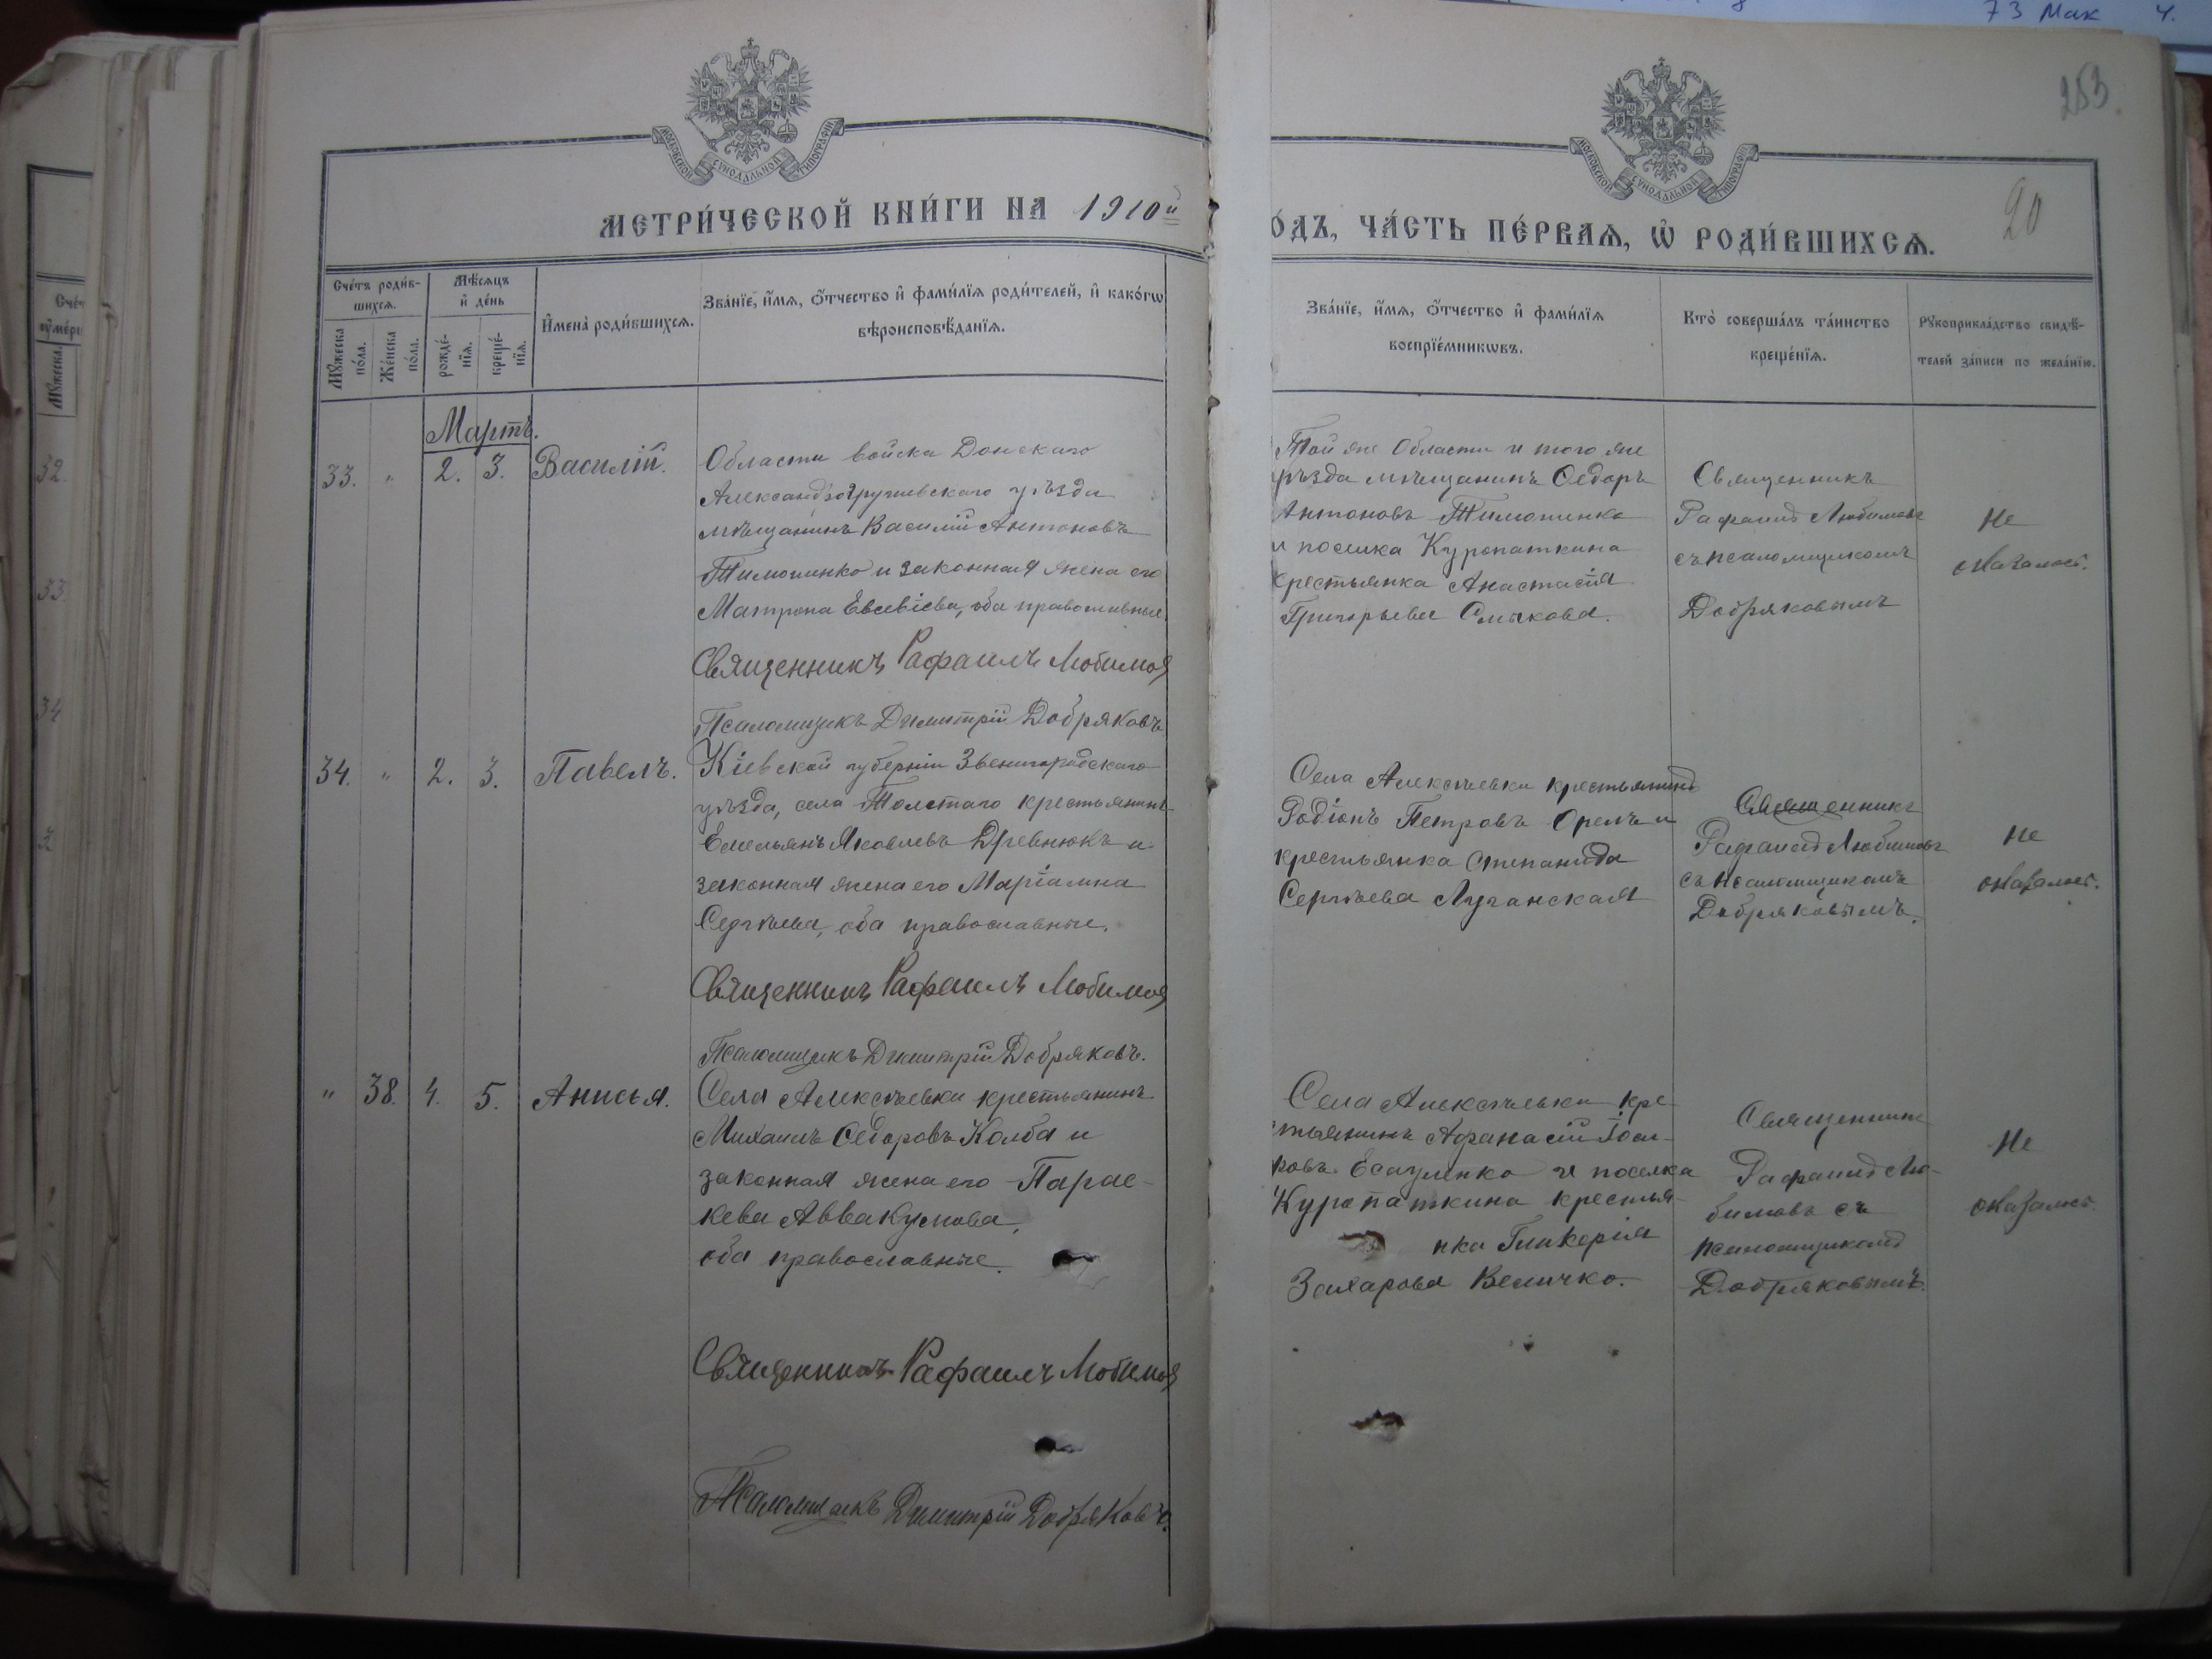 73 Мак 4.
253
20
МОСКОВСКОЙ СѴНОДАЛЬНОЙ ТИПОГРАФІИ
МОСКОВСКОЙ СѴНОДАЛЬНОЙ ТИПОГРАФІИ
МЕТРИ́ЧЕСКОЙ КНИ́ГИ НА 1910й
О́ДЪ, ЧА́СТЬ ПЕ́РВАѦ, Ѡ҆ РОДИ́ВШИХСѦ.
Сче́тъ роди́в-
шихсѧ.
Мꙋ́жеска по́ла.
Же́нска по́ла.
Мѣ́сѧцъ
и҆ де́нь
рожде́-
нїѧ.
креще́-
нїѧ.
И҆мена̀ роди́вшихсѧ.
Зва́нїе, и҆́мѧ, ѻ҆́тчество и҆ фами́лїѧ роди́телей, и҆ како́гѡ
вѣроисповѣ́данїѧ.
Зва́нїе, и҆́мѧ, ѻ҆́тчество и҆ фами́лїѧ
воспрїе́мникѡвъ.
Кто̀ соверша́лъ та́инство
креще́нїѧ.
Рꙋкоприкла́дство свидѣ́-
телей за́писи по жела́нїю.
Мартъ.
33. " 2. 3. Василій.
Области войска Донскаго
Александрогрушевскаго уѣзда
мѣщанинъ Василій Антоновъ
Тимошенко и законная жена его
Матрона Евсевіева, оба православные.
Священникъ Рафаилъ Любимов
Псаломщикъ Димитрій Добряковъ
Той же Области и того же
уѣзда мѣщанинъ Ѳедоръ
Антоновъ Тимошенко
и поселка Куропаткина
крестьянка Анастасія
Григорьева Смыкова.
Священникъ
Рафаилъ Любимовъ
съ псаломщикомъ
Добряковымъ
Не
оказалось.
34. " 2. 3. Павелъ.
Кіевской губерніи Звенигородскаго
уѣзда, села Толстаго крестьянинъ
Емельянъ Яковлевъ Древнюкъ и
законная жена его Маріамна
Сергѣева, оба православные.
Священникъ Рафаилъ Любимов
Псаломщикъ Димитрій Добряковъ.
Села Алексѣевки крестьянинъ
Родіонъ Петровъ Орелъ и
крестьянка Степанида
Сергѣева Луганская
Священникъ
Рафаилъ Любимовъ
съ псаломщикомъ
Добряковымъ.
Не
оказалось.
" 38. 4. 5. Анисья.
Села Алексѣевки крестьянинъ
Михаилъ Ѳедоровъ Колба и
законная жена его Парас-
кева Аввакумова,
оба православные.
Священникъ Рафаилъ Любимов
Псаломщикъ Димитрій Добряковъ.
Села Алексѣевки кре-
стьянинъ Афанасій
Есауленко и поселка
Куропаткина крестья-
нка Гликерія
Захарова Величко.
Священникъ
Рафаилъ Лю-
бимовъ съ
псаломщикомъ
Добряковымъ.
Не
оказалось.